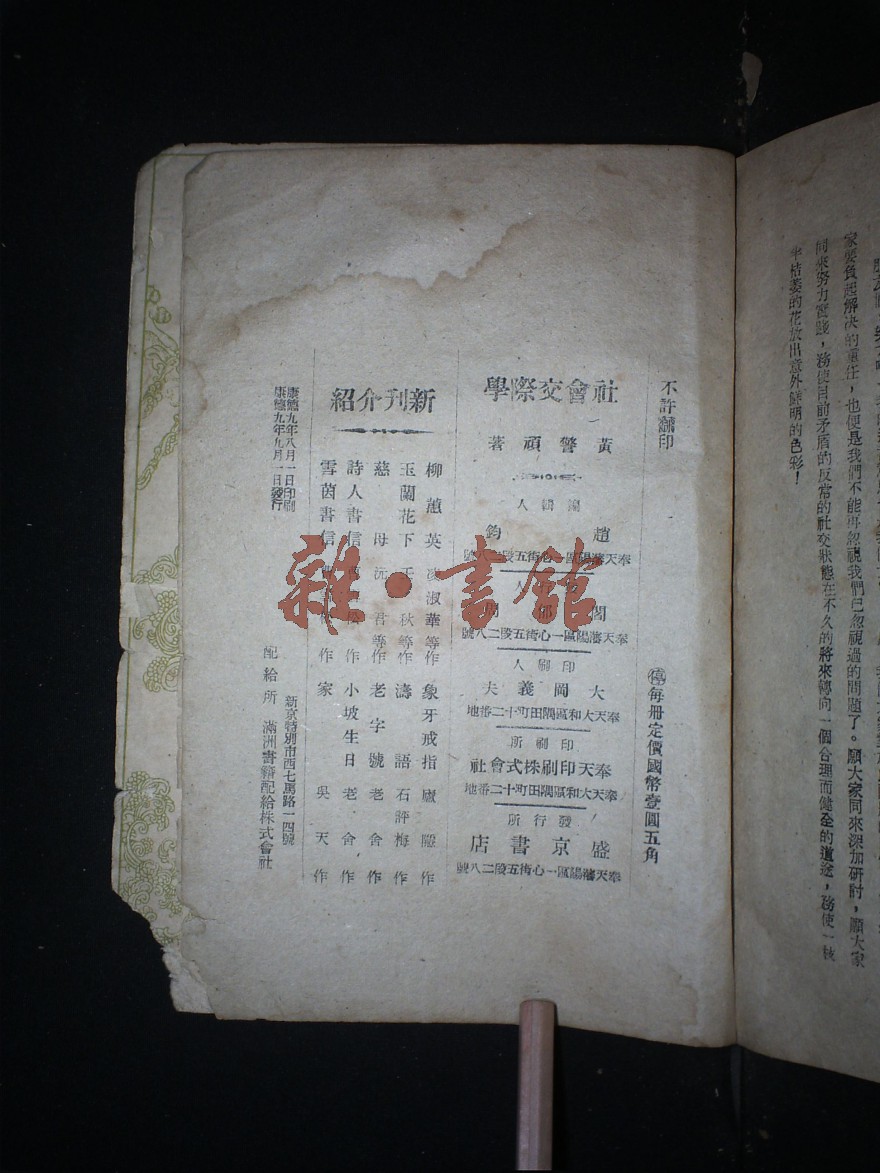 家要負起解決的責任，也便是我們不能再忽視我們已忽視過的問題了。願大家同來深加研討，願大家
同來努力實踐，務使目前矛盾的反常的社交狀態在不久的將來轉向一個合理而健全的道途，務使一株
半枯萎的花放出意外鮮明的色彩！
不許翻印
㊝每冊定價國幣壹圓五角
社會交際學
黃警頑著
編輯人
趙鈞
奉天瀋陽區一心街五段二八號
人
閣
奉天瀋陽區一心街五段二八號
印刷人
大岡義夫
奉天大和區隅田町十二番地
印刷所
奉天印刷株式會社
奉天大和區隅田町十二番地
發行所
盛京書店
奉天瀋陽區一心街五段二八號
新刊介紹
柳蕙英 凌淑華等作 象牙戒指 廬隱作
玉蘭花下 王秋等作 濤語 石評梅作
慈母 沅君等作 老字號 老舍作
詩人書信 作 小坡生日 老舍作
雪茵書信 作 家 吳天作
康德九年八月一日印刷
康德九年九月一日發行
新京特別市西七馬路一四號
配給所 滿洲書籍配給株式會社
雜·書館